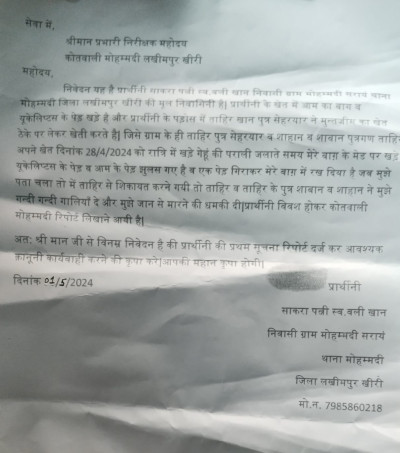 सेवा में,
श्रीमान प्रभारी निरीक्षक महोदय
कोतवाली मोहम्मदी लखीमपुर खीरी
महोदय,
निवेदन यह है प्रार्थीनी साकरा पत्नी स्व.वली खान निवासी ग्राम मोहम्मदी सरायं थाना
मोहम्मदी जिला लखीमपुर खीरी की मूल निवासिनी है| प्रार्थीनी के खेत में आम का बाग व
यूकेलिप्टस के पेड़ खड़े है और प्रार्थीनी के पड़ोस में ताहिर खान पुत्र सेहरयार ने मुस्तजीम का खेत
ठेके पर लेकर खेती करते है| जिसे ग्राम के ही ताहिर पुत्र सेहरयार व शाहान व शाबान पुत्रगण ताहिर
अपने खेत दिनांक 28/4/2024 को रात्रि में खड़े गेहूं की पराली जलाते समय मेरे बाग़ के मेड पर खड़े
यूकेलिप्टस के पेड़ व आम के पेड़ झुलस गए है व एक पेड़ गिराकर मेरे बाग़ में रख दिया है जब मुझे
पता चला तो में ताहिर से शिकायत करने गयी तो ताहिर व ताहिर के पुत्र शाबान व शाहान ने मुझे
गन्दी गन्दी गालियाँ दे और मुझे जान से मारने की धमकी दी|प्रार्थीनी विवश होकर कोतवाली
मोहम्मदी रिपोर्ट लिखाने आयी है|
अत: श्री मान जी से विनम्र निवेदन है की प्रार्थीनी की प्रथम सूचना रिपोर्ट दर्ज कर आवश्यक
क़ानूनी कार्यवाही करने की कृपा करे|आपकी महान कृपा होगी|
दिनांक 01/5/2024
प्रार्थीनी
साकरा पत्नी स्व.वली खान
निवासी ग्राम मोहम्मदी सरायं
थाना मोहम्मदी
जिला लखीमपुर खीरी
मो.न. 7985860218